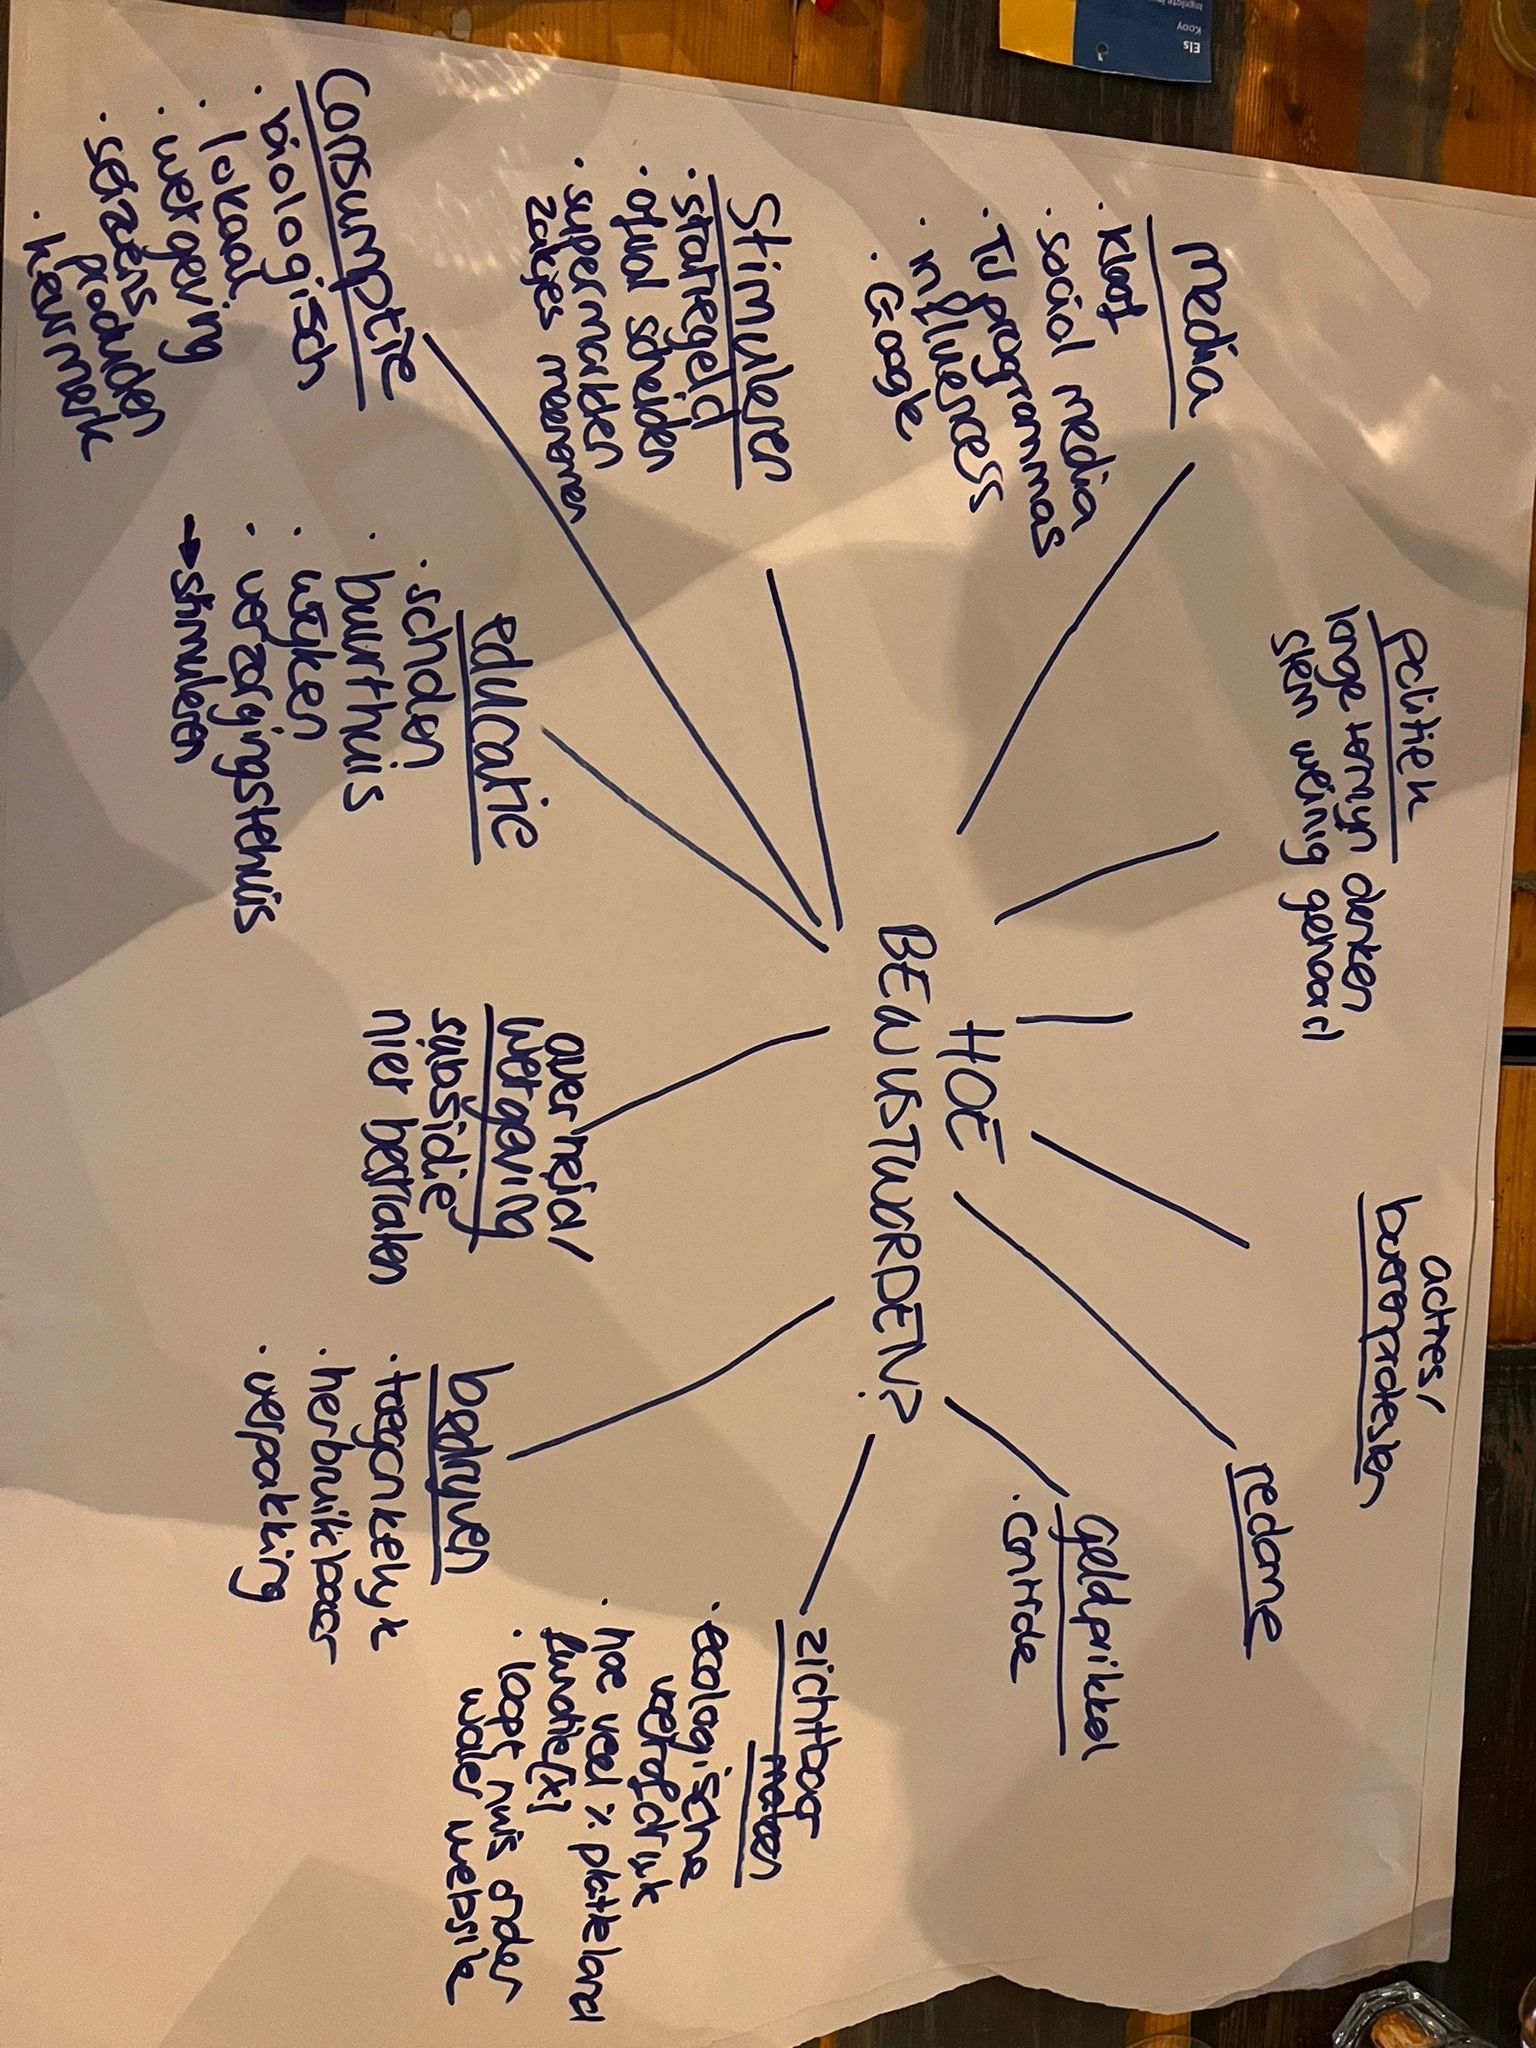 HOE
BEWUSTWORDEN?
politiek
lange termijn denken
stem weinig gehoord
acties/
boerenprotesten
reclame
Geldprikkel
· controle
zichtbaar
maken
· ecologische
voetafdruk
· hoe veel % platteland
· loopt huis onder
water website
bedrijven
· toegankelijk
· herbruikbaar
· verpakking
overheid/
wetgeving
subsidie
niet bestraten
educatie
· scholen
· buurthuis
· wijken
· verzorgingstehuis
→ stimuleren
Consumptie
· biologisch
· lokaal
· wetgeving
· seizoens
producten
· keurmerk
Stimuleren
· statiegeld
· afval scheiden
· supermarkten
zakjes meenemen
media
· social media
· TV programmas
· influencess
· Google
Els
Kooy